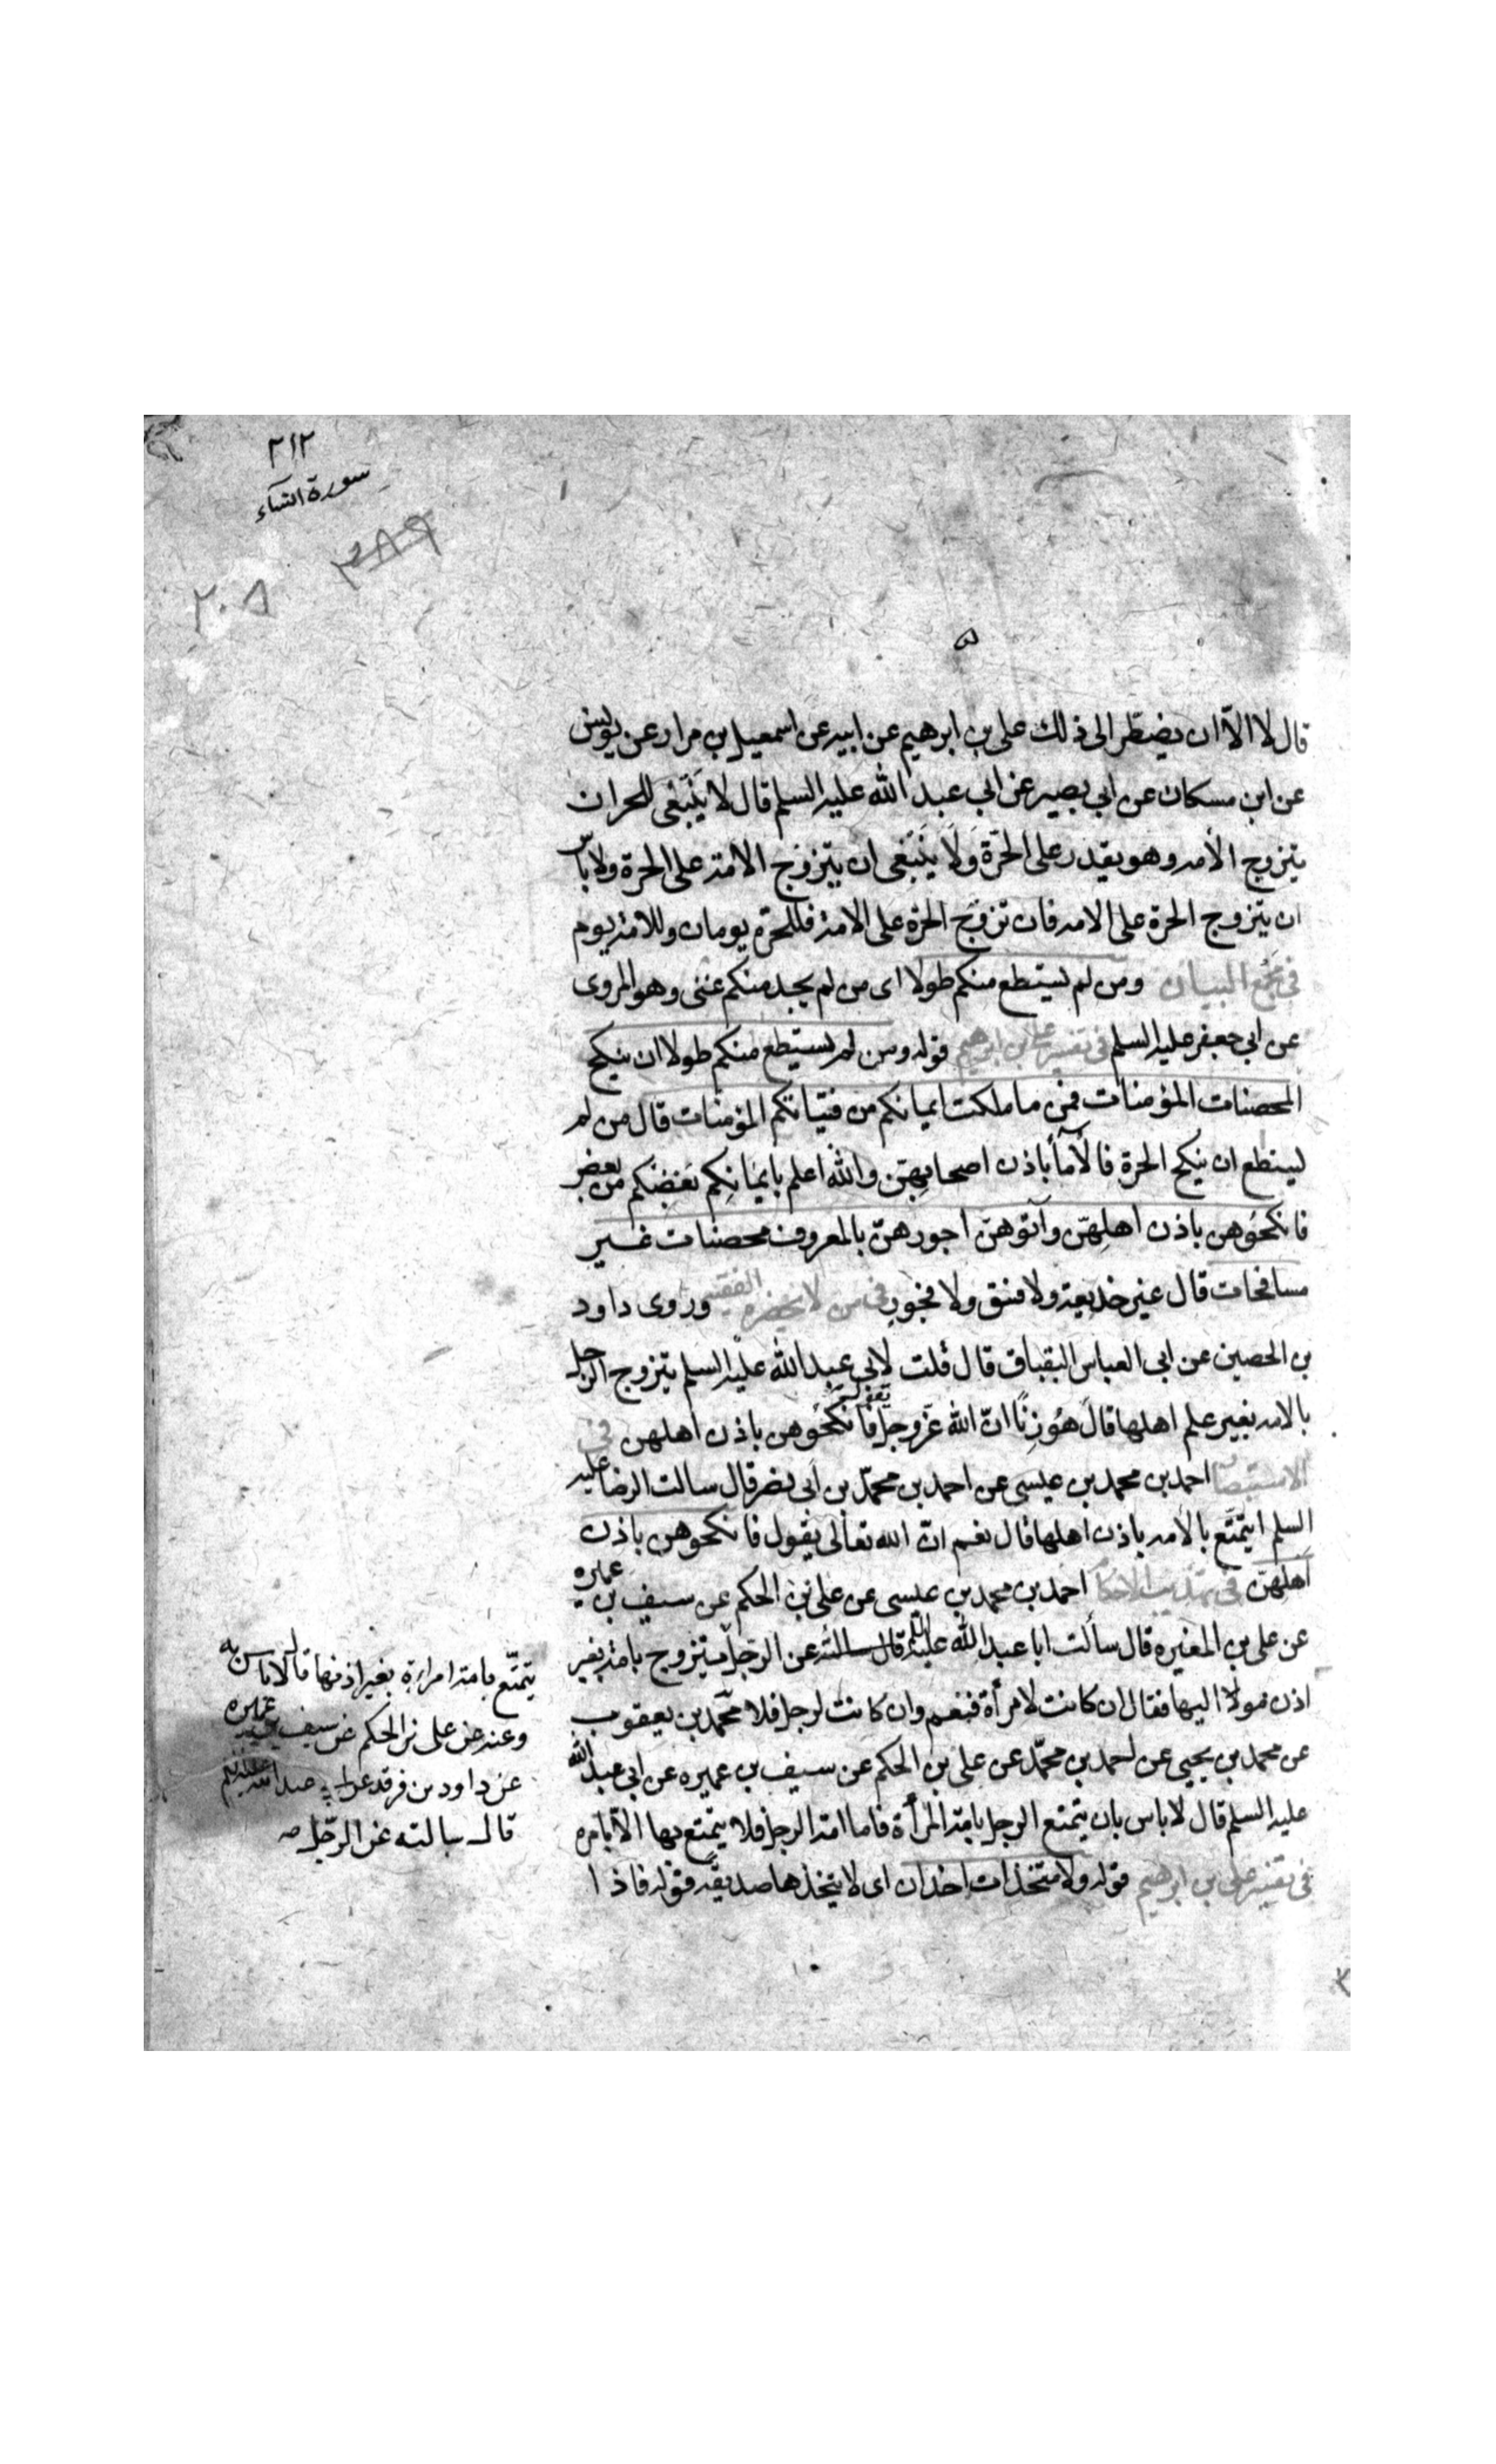 ٢١٢
سورة النساء
٣٨٩
٢٠٥
قال لا الّا ان يضطّر الى ذلك على بن ابرهيم عن ابيه عن اسمعيل بن مرار عن يونس
عن ابن مسكان عن ابى بصير عن ابى عبد الله عليه السلم قال لا يَنْبَغى للحر ان
يتزوج الأمه وهو يقدر على الحرّة وَلَا يَنْبَغى ان يتزوّج الامة على الحرة ولا باس
ان يتزوج الحرة على الامه فان تزوّج الحرّة على الامة فللحرّة يومان وللامة يوم
فى مجمع البيان ومن لم يستطع منكم طولا اى من لم يجد منكم غنى وهو المروى
عن ابى جعفر عليه السلم فى تفسير على بن ابرهيم قوله ومن لم يستطع منكم طولا ان ينكح
المحصنات المؤمنات فمن ما ملكت ايمانكم من فتياتكم المؤمنات قال من لم
يستطع ان ينكح الحرة فالأمآ باذن اصحابهنّ والله اعلم بايمَانِكم بَعْضكم من بعض
فانكحُوهن باذن اهلِهنّ وآتوهنّ اجورهنّ بالمعروف محصنات غير
مسافحات قال غير خديعة ولا فسق ولا فجور فى من لا يحضره الفقيه وروى داود
بن الحصين عن ابى العباس البقباق قال قلت لابى عبد الله عليه السلم يتزوج الرجل
بالامه بغير علم اهلها قال هُو زنًا انّ الله عَزّ وجلّ يقول فانكحُوهن باذن اهلهن فى
الاستبصار احمد بن محمد بن عيسى عن احمد بن محمّد بن ابى نصر قال سالت الرضا عليه
السلم ايتمتّع بالامه باذن اهلها قال نعم انّ الله تعالى يقول فانكحوهن باذن
اهلهنّ فى تهذيب الاحكام احمد بن محمد بن عيسى عن على بن الحكم عن سيف بن عميره
عن على بن المغيره قال سألت ابا عبد الله عليه السلم قال سالته عن الرجل يتزوج بامة بغير
اذن مولا اليها فقال ان كانت لامرأة فنعم وان كانت لرجل فلا محّمد بن يعقوب
عن محمد بن يحيى عن احمد بن محمّد عن على بن الحكم عن سيف بن عميره عن ابى عبد الله
عليه السلم قال لا باس بان يتمتع الرجل بامة المرأة فاما امة الرجل فلا يتمتع بها الا بامره
فى تفسير على بن ابرهيم قوله ولا متخذات اخدان اى لا يتخذها صديقة قوله فاذا
يتمتّع بامة امراءة بغير اذنها قال لا باس به
وعنه عن على بن الحكم عن سيف بن عميره
عن داود بن فرقد عن ابى عبد الله عليه السلم
قال سالته عن الرّجل صه